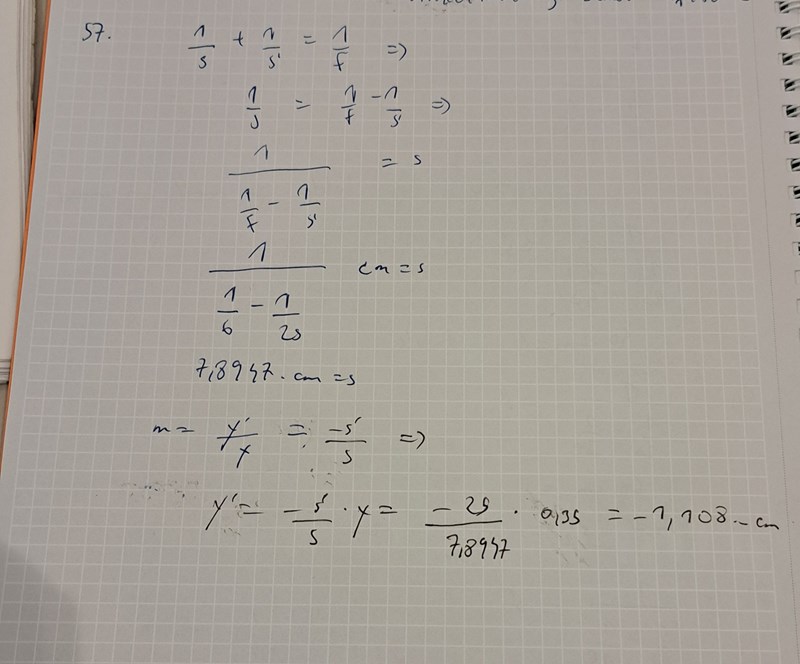 57. 1/s + 1/s' = 1/f =>
1/s = 1/f - 1/s' =>
1/(1/f - 1/s') = s
1/(1/6 - 1/25) cm = s
7,8947.. cm = s
m = y'/y = -s'/s =>
y' = -s'/s · y = -25/7,8947 · 0,35 = -1,108.. cm